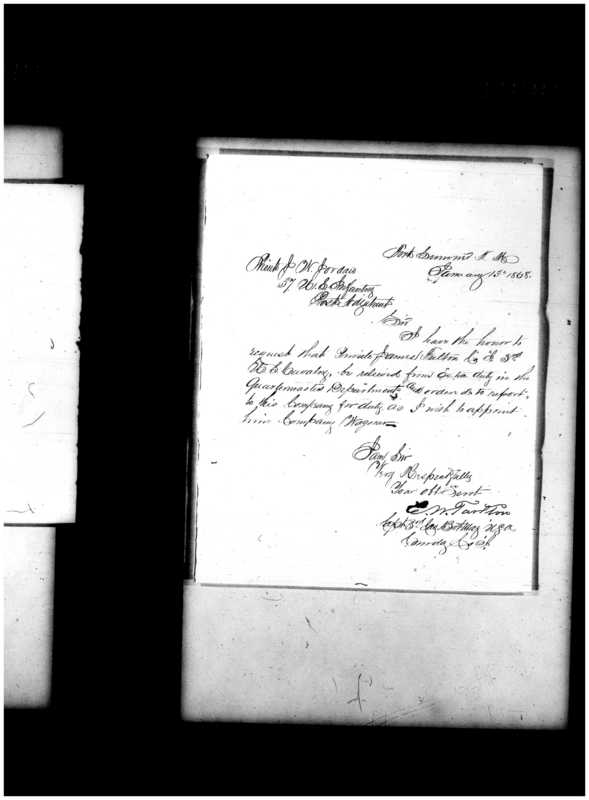 Fort Sumner N. M.
January 15th 1868.
Lieut J. W. Jordan
37 U. S. Infantry
Post Adjutant
Sir
I have the honor to
request that Private James Fulton Co. 3rd
U. S. Cavalry, be relieved from Extra duty in the
Quartermasters Department and ordered to report
to his Company for duty as I wish to appoint
him Company Wagoner
I am Sir
Very Respectfully
Your obt Servt
Capt 3rd Cav U S A
Comdg Co